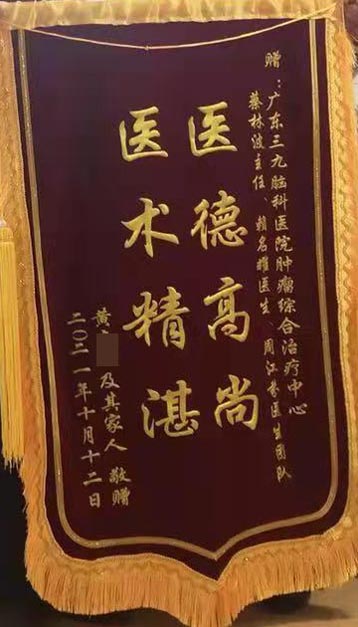 赠：广东三九脑科医院肿瘤综合治疗中心
蔡林波主任、赖名雄医生、周江芬医生团队
医德高尚
医术精湛
黄 及其家人 敬赠
二〇二一年十月十二日